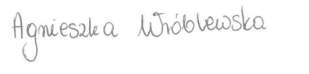 Agnieszka Wróblewska